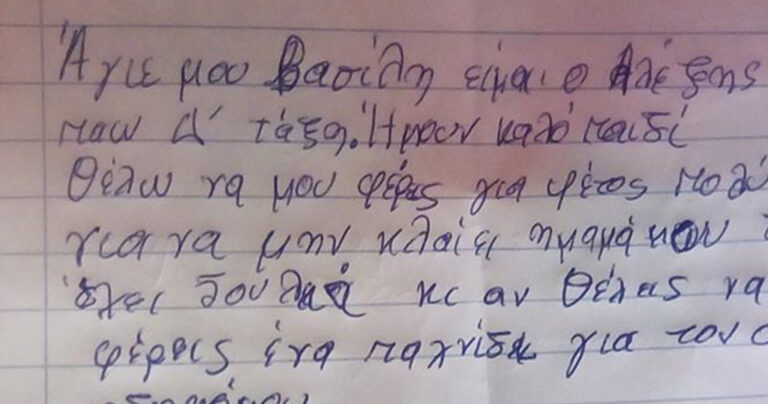 Άγιε μου Βασίλη είμαι ο Αλέξης
παω Δ' τάξη. Ήμουν καλό παιδί
Θέλω να μου φέρεις για φέτος πολύ
για να μην κλαίει η μαμά μου
έχει δουλειά κι αν θέλεις να
φέρεις ένα παχνίδι για τον